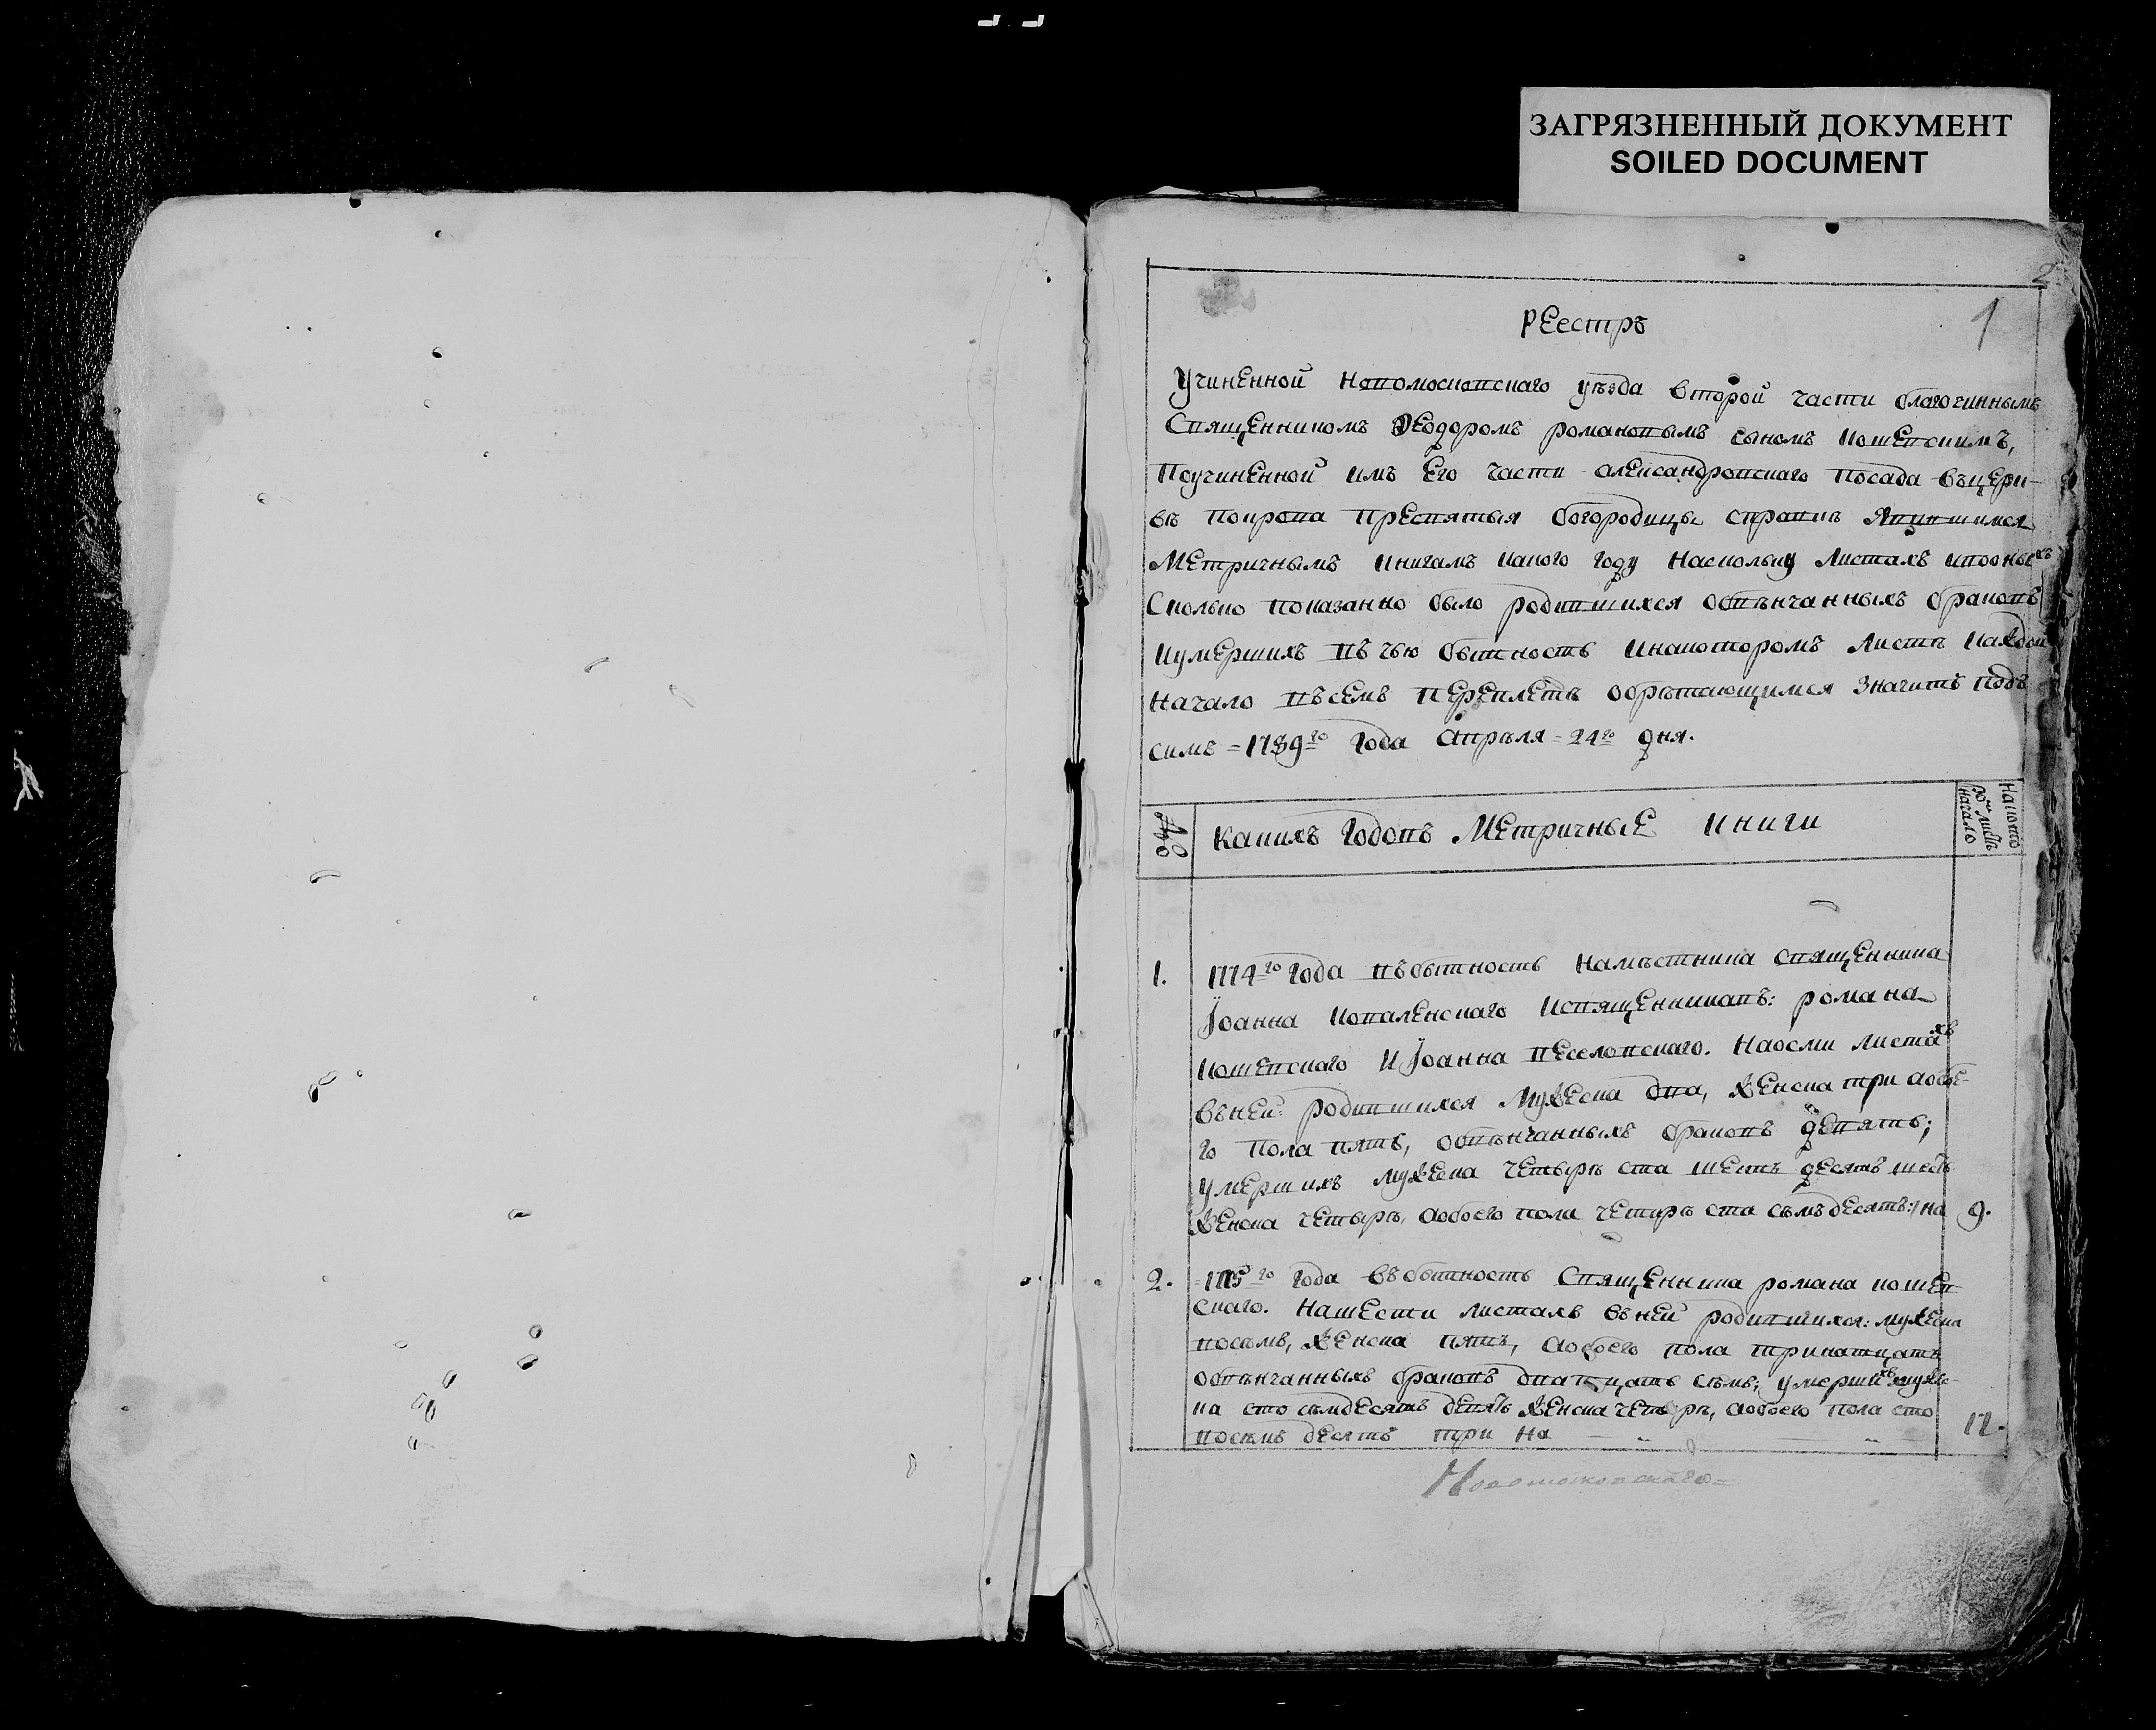 ЗАГРЯЗНЕННЫЙ ДОКУМЕНТ
SOILED DOCUMENT
2
1
Реестръ
Учиненной Новомосковскаго уѣзда второй части благочиннымъ
Священникомъ Ѳеодоромъ романовымъ сыномъ кошевскимъ,
Поучиненной имъ Его части александровскаго посада въцерк-
вѣ покрова пресвятыя богородицы справкѣ явившимся
Метричнымъ книгамъ какого году Насколку листахъ ивооныхъ
Сколько показанно было родившихся обвѣнчанныхъ браковъ
Иумершихъ въ чью бытность Инакоторомъ листѣ каждой
Начало въсемъ переплетѣ обрѣтающимся значитъ подъ
симъ = 1789го года Апрѣля = 24го дня.
№
какихъ годовъ Метричные книги
Накото
ромъ листѣ
начало
1. 1774го года въбытность Намѣстника священника
Іоанна коваленскаго Исвященниковъ: романа
кошевскаго И Іоанна веселовскаго. Наосми листахъ
въней: родившихся Мужеска два, женска три аобое-
го пола пять, обвѣнчанныхъ браковъ девять;
умершихъ мужеска четырѣ ста шесть десятъ шесть
женска четырѣ, аобоего пола четырѣ ста сѣмъдесятъ: на 9.
2. 1775го года въбытность Священника романа кошев-
скаго. Нашести листахъ въней родившихся: мужеска
восѣмъ, женска пять, аобоего пола тринатцать
обвѣнчанныхъ браковъ дватцать сѣмь; умершихъ муже-
ка сто сѣмдесятъ девять женска четырѣ, аобоего пола сто
восѣмъ десятъ три на 17.
Новомосковскаго =